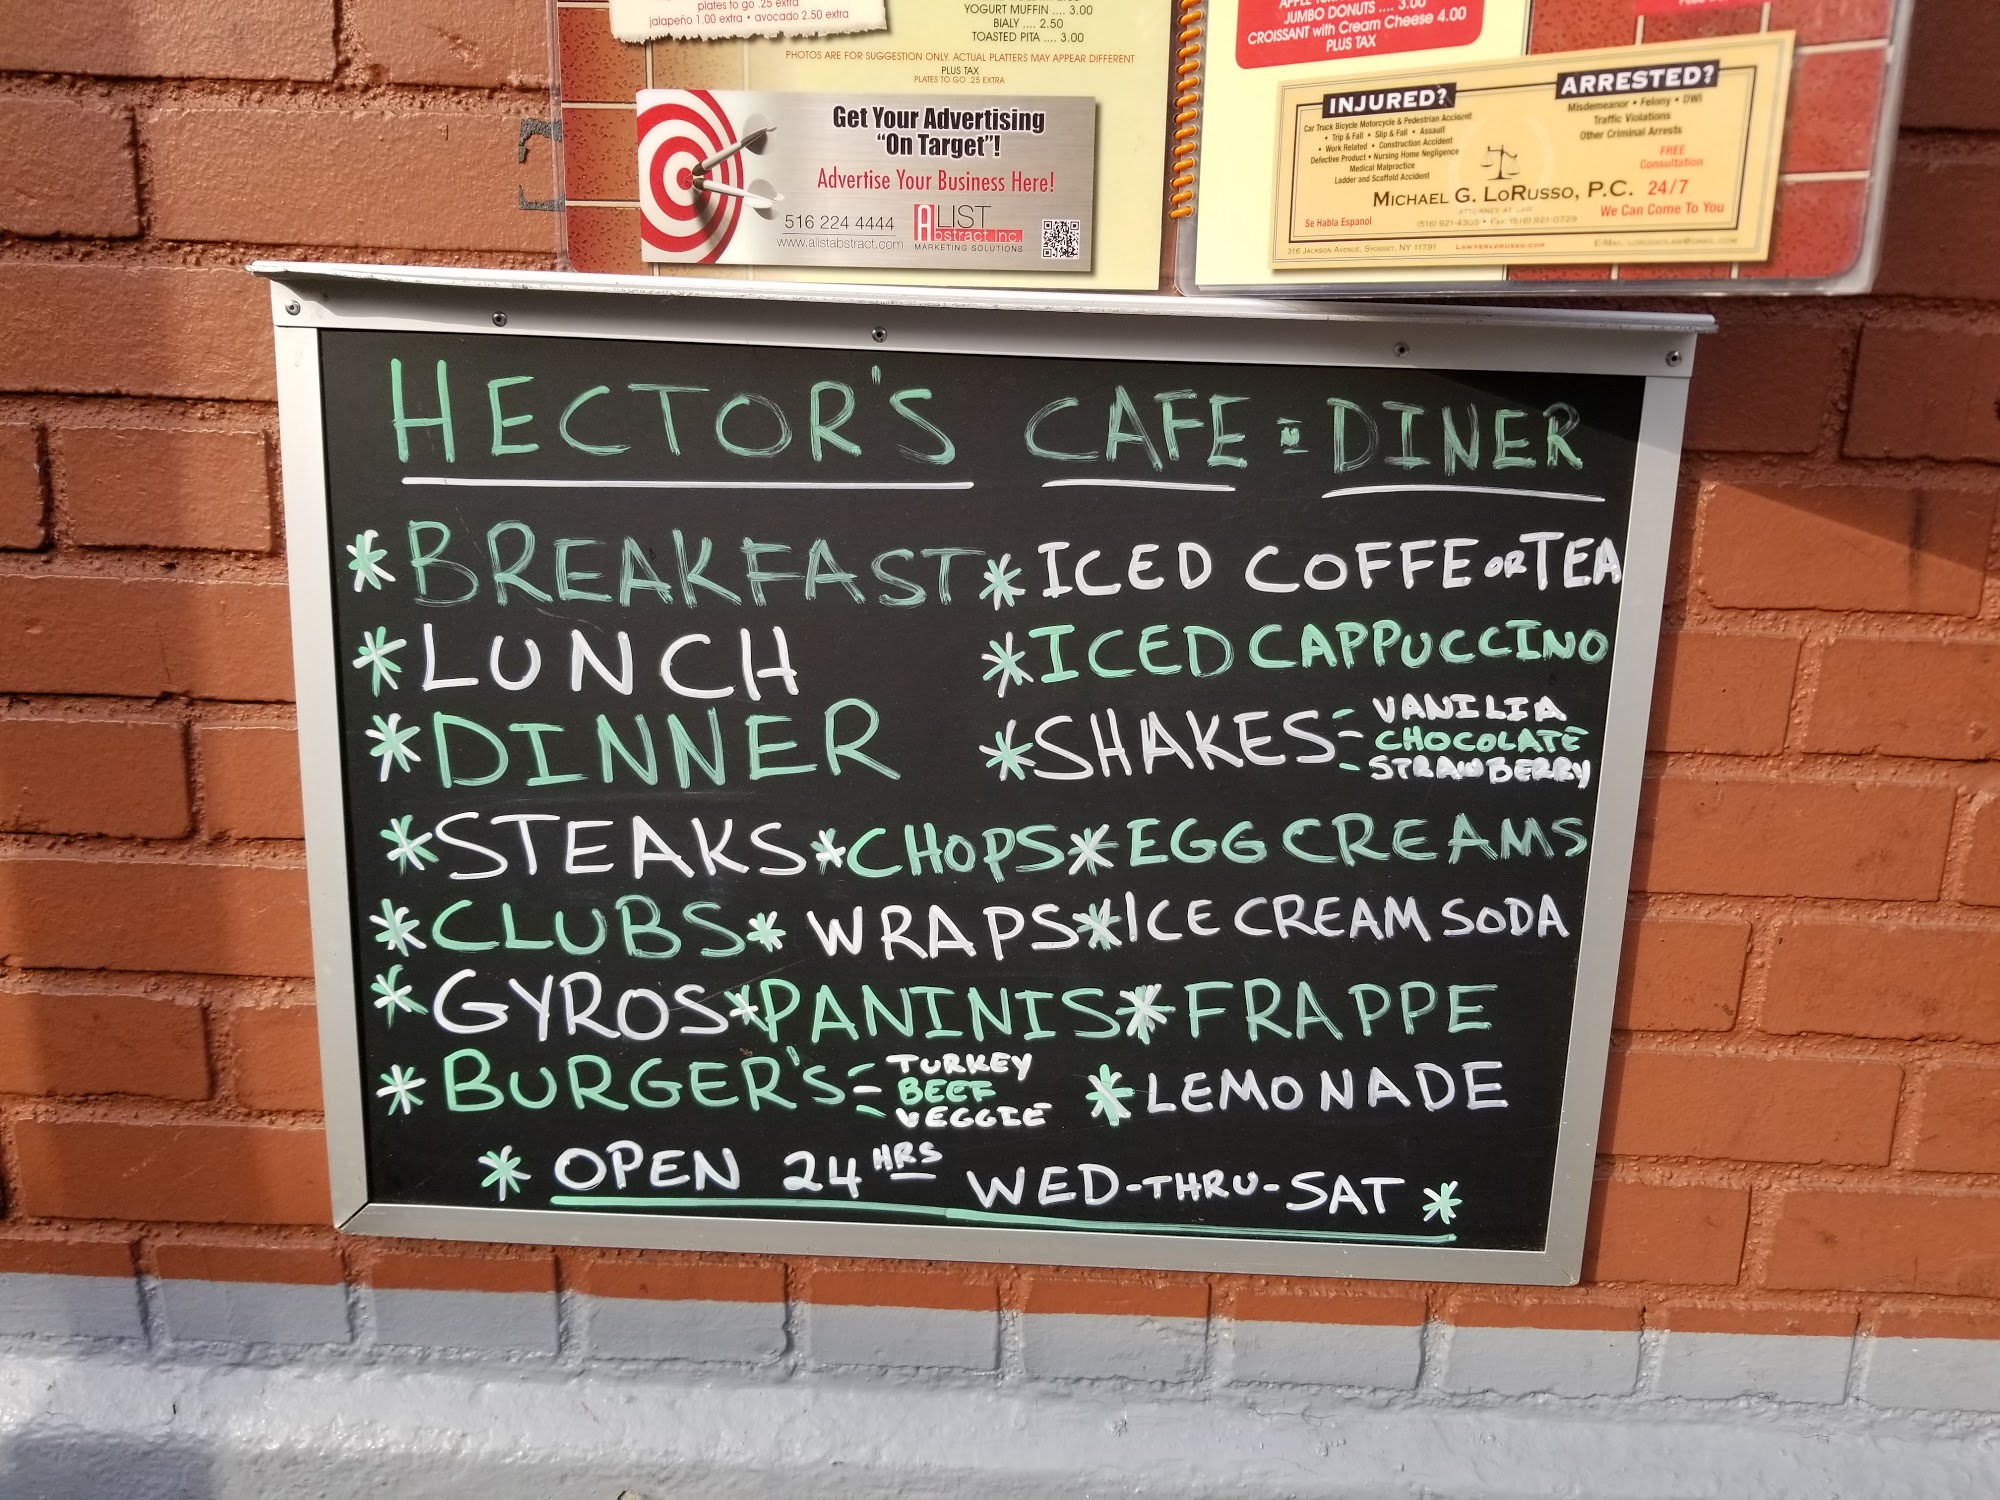 plates to go .25 extra
jalapeño 1.00 extra • avocado 2.50 extra
YOGURT MUFFIN .... 3.00
BIALY .... 2.50
TOASTED PITA .... 3.00
PHOTOS ARE FOR SUGGESTION ONLY. ACTUAL PLATTERS MAY APPEAR DIFFERENT
PLUS TAX
PLATES TO GO .25 EXTRA
Get Your Advertising
"On Target"!
Advertise Your Business Here!
516 224 4444
www.alistabstract.com
ALIST
Abstract Inc.
MARKETING SOLUTIONS
JUMBO DONUTS .... 3.00
CROISSANT with Cream Cheese 4.00
PLUS TAX
INJURED?
Car Truck Bicycle Motorcycle & Pedestrian Accident
• Trip & Fall • Slip & Fall • Assault
• Work Related • Construction Accident
Defective Product • Nursing Home Negligence
Medical Malpractice
Ladder and Scaffold Accident
ARRESTED?
Misdemeanor • Felony • DWI
Traffic Violations
Other Criminal Arrests
FREE
Consultation
MICHAEL G. LORUSSO, P.C.
24/7
ATTORNEY AT LAW
We Can Come To You
Se Habla Espanol
(516) 921-4305 • FAX (516) 921-0729
316 JACKSON AVENUE, SYOSSET, NY 11791
LAWYERLORUSSO.COM
HECTOR'S CAFE = DINER
* BREAKFAST * ICED COFFE OR TEA
* LUNCH * ICED CAPPUCCINO
* DINNER * SHAKES - VANILIA
- CHOCOLATE
- STRAWBERRY
* STEAKS * CHOPS * EGG CREAMS
* CLUBS * WRAPS * ICE CREAM SODA
* GYROS * PANINIS * FRAPPE
* BURGER'S - TURKEY
- BEEF
- VEGGIE
* LEMONADE
* OPEN 24 HRS WED-THRU-SAT *